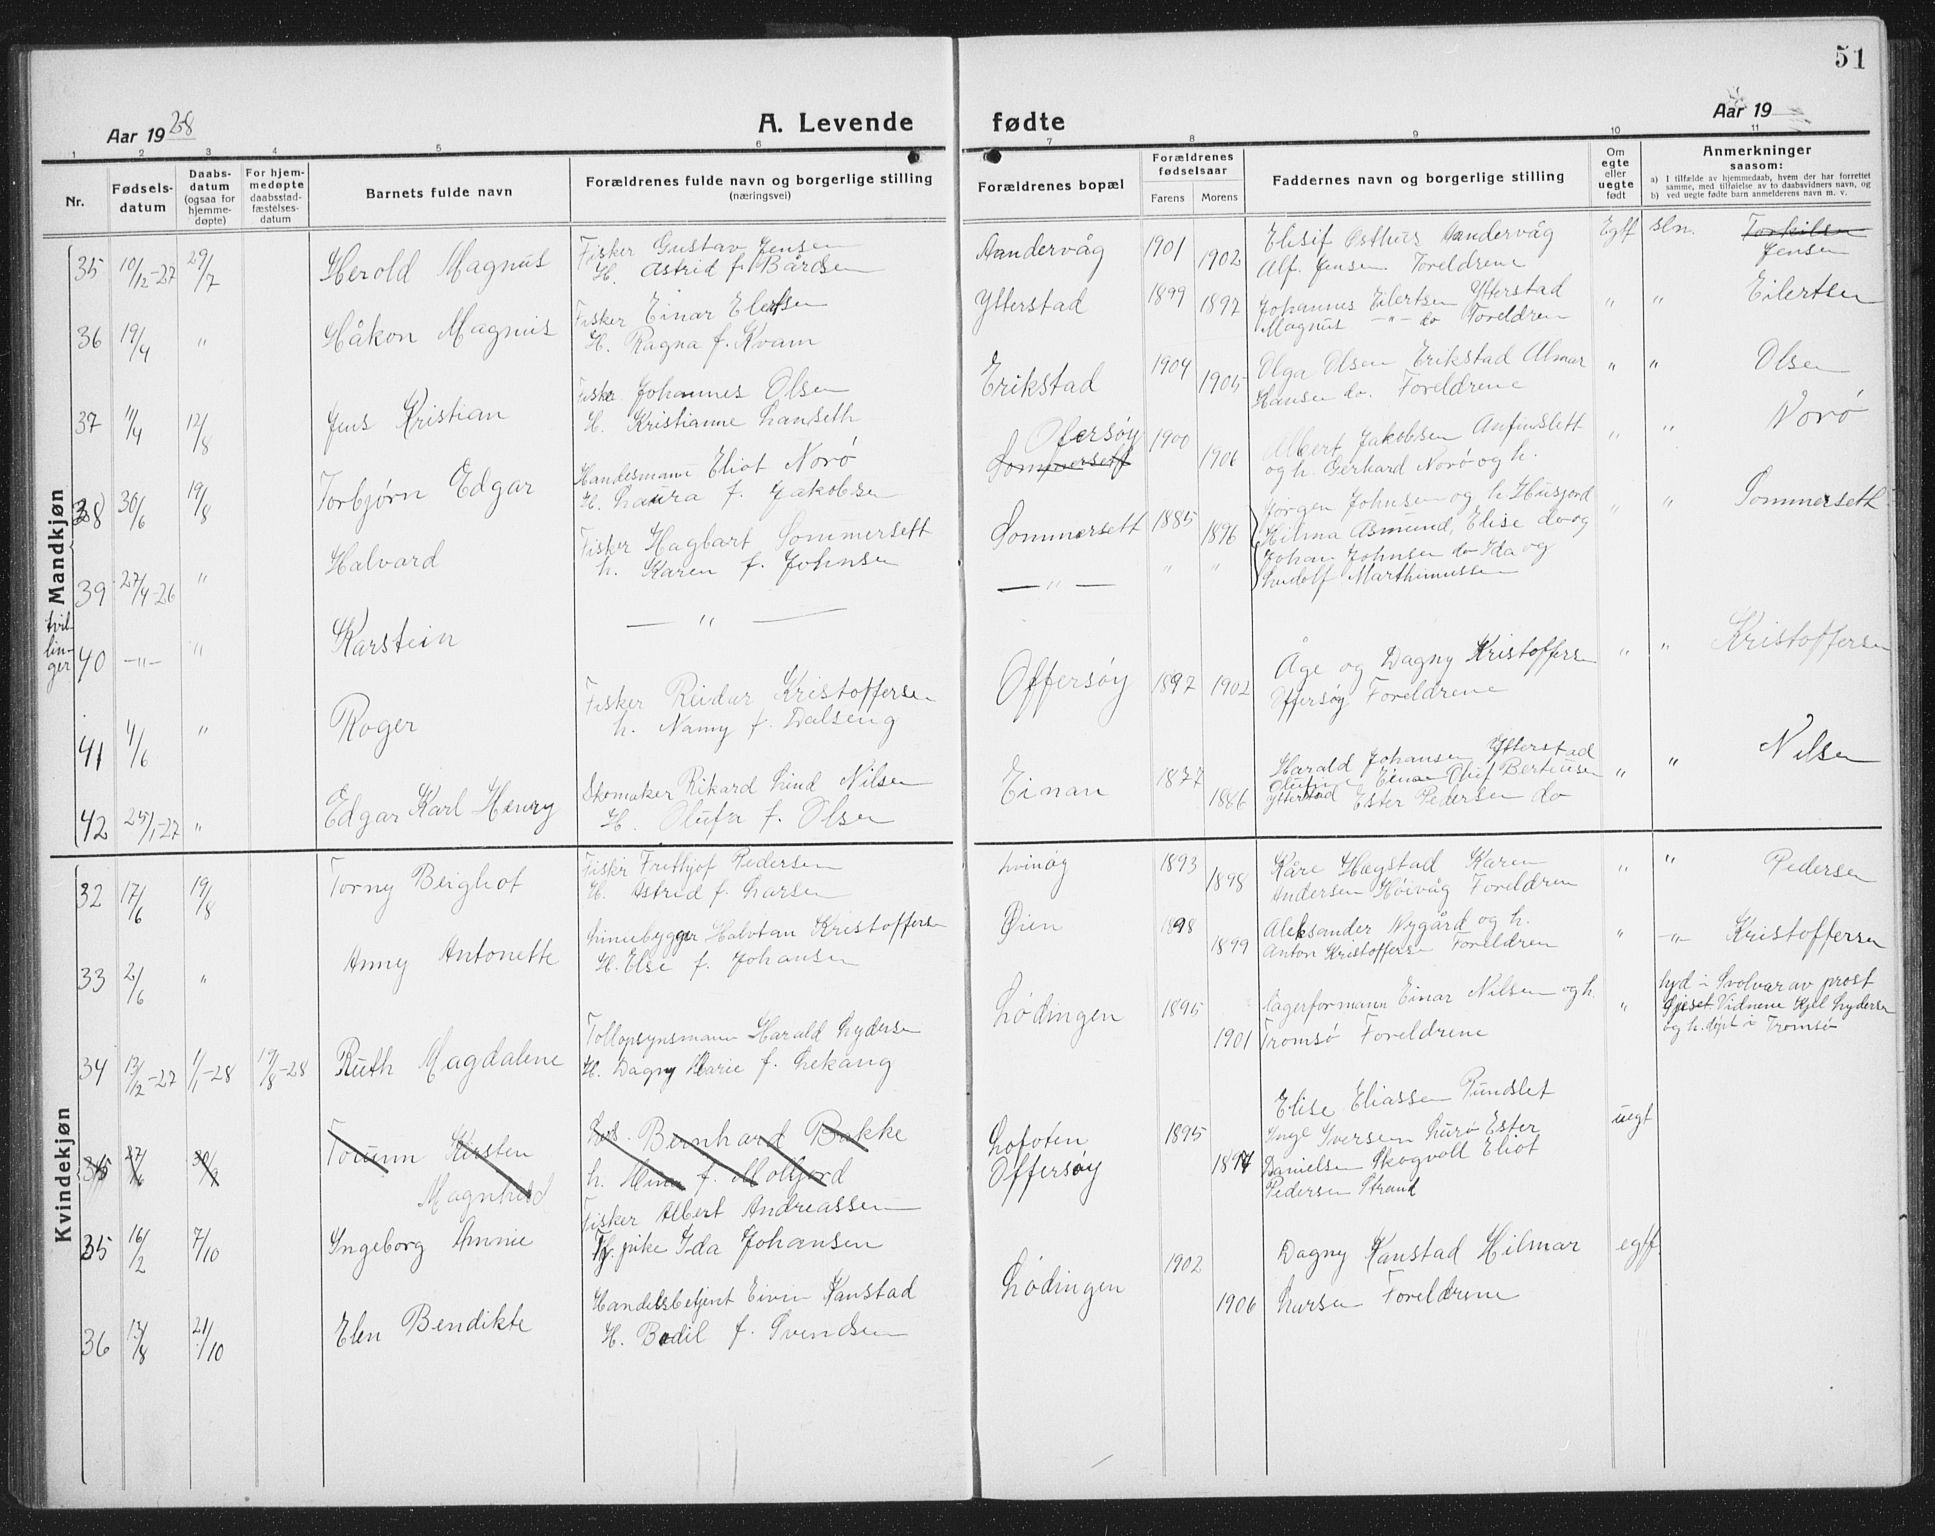 51
Aar 1928
A. Levende fødte
Aar 19
1 2 3 4 5 6 7 8 9 10 11
Nr.
Fødsels-
datum
Daabs-
datum
(ogsaa for
hjemme-
døpte)
For hjem-
medøpte
daabsstad-
fæstelses-
datum
Barnets fulde navn
Forældrenes fulde navn og borgerlige stilling
(næringsvei)
Forældrenes bopæl
Forældrenes
fødselsaar
Farens Morens
Faddernes navn og borgerlige stilling
Om
egte
eller
uegte
født
Anmerkninger
saasom:
a) I tilfælde av hjemmedaab, hvem der har forrettet
samme, med tilføielse av to daabsvidners navn, og
b) ved uegte fødte barn anmelderens navn m. v.
Mandkjøn
35 10/12-27 29/7 Herold Magnus
Fisker Gustav Jensen
H. Astrid f. Bårdsen
Aandervåg 1901 1902
Elisif Osthus Aandervåg
Alf. Jensen Foreldrene
Egtf sln. Torkilsen
Jensen
36 19/4 " Håkon Magnus
Fisker Einar Elertsen
H. Ragna f. Kvam
Ytterstad 1899 1897
Johannes Eilertsen Ytterstad
Magnus -"- do Foreldren
" " Eilertsen
37 11/4 12/8 Jens Kristian
Fisker Johannes Olsen
H. Kristianne Hanseth
Erikstad 1904 1905
Olga Olsen Erikstad Almar
Hansen do. Foreldrene
" " Olsen
38 30/6 19/8 Torbjørn Edgar
Handesmann Eliot Norø
H. Laura f. Jakobsen
Offersøy
Sommersett 1900 1906
Albert Jakobsen Anfinslett
og h. Gerhard Norø og h.
" " Norø
39 27/4-26 " Halvard
Fisker Hagbart Sommersett
h. Karen f. Johnsen
Sommersett 1885 1896
Jørgen Johnsen og h. Husjord
Hilma Asmund, Elise do og
Johan Johnsen do Ida og
Ludolf Marthinussen
" " Sommerseth
tvil-
lin-
ger
40 -"- " Karstein
— " —
— " — " "
41 4/6 " Roger
Fisker Reidar Kristoffersen
h. Nanny f. Dalseng
Offersøy 1897 1902
Åge og Dagny Kristoffersen
Offersøy Foreldrene
" " Kristoffersen
42 25/1-27 " Edgar Karl Henry
Skomaker Rikard Lind Nilsen
H. Olufa f. Olsen
Einan 1877 1886
Harald Johansen Ytterstad
Einan Oluf Bertinsen
Ytterstad Ester Pedersen do
" " Nilsen
Kvindekjøn
32 17/6 19/8 Torny Beighot
Fisker Frithjof Pedersen
H. Astrid f. Larsen
Svinøy 1893 1898
Kåre Hagstad Karen
Andersen Høivåg Foreldren
" " Pedersen
33 2/6 " Anny Antonette
Linnebygger Halvtan Kristoffersen
H. Else f. Johansen
Øien 1898 1899
Aleksander Nygård og h.
Anton Kristoffersen Foreldren
" -"- Kristoffersen
34 13/12-27 1/1-28 19/8-28 Ruth Magdalene
Tollopsynsmann Harald Lydersen
H. Dagny Marie f. Lekang
Lødingen 1895 1901
Lagerformann Einar Nilsen og h.
Tromsø Foreldrene
" hjd i Svolvær av prost
Gjeset Vidnene Kjel Lydersen
og h. døpt i Tromsø
35 27/6 30/9 Torunn Kirsten
Magnhild
Los. Bernhard Bakke
h. Mina f. Molfjord
35 16/2 7/10 Ingeborg Annie
Fisker Albert Andreassen
Tj. pike Ida Johansen
Lofoten
Offersøy 1895 1897
Elise Eliassen Rundslet
Inge Iversen Lurø Ester
Danielsen Skogvoll Eliot
Pedersen Strand
uegt
36 13/8 21/10 Elen Bendikte
Handelsbetjent Eivin Kanstad
H. Bodil f. Svendsen
Lødingen 1902 1906
Dagny Kanstad Hilmar
Larsen Foreldrene
egtf